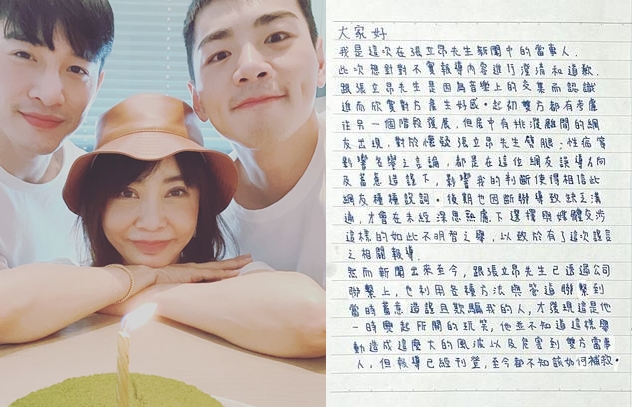 大家好
我是這次在張立昂先生新聞中的當事人.
此次想針對不實報導內容進行澄清和道歉.
跟張立昂先生是因為音樂上的交集而認識
進而欣賞對方產生好感。起初雙方都有考慮
往另一個階段發展,但居中有挑撥離間的網
友出現,對於懷疑張立昂先生劈腿;性病等
影響名譽之言論,都是在這位網友誤導方向
及蓄意造謠下,影響我的判斷使得相信此
網友種種說詞。後期也因斷聯導致缺乏溝
通,才會在未經深思熟慮下選擇與媒體交涉
這樣的如此不明智之舉,以致於有了這次謠言
之相關報導.
然而新聞出來至今,跟張立昂先生已透過公司
聯繫上,也利用各種方法與管道聯繫到
當時蓄意造謠且欺騙我的人,才發現這是他
一時興起所開的玩笑,他並不知道這樣舉
動造成這麼大的風波以及危害到雙方當事
人,但報導已經刊登,至今都不知該如何補救。